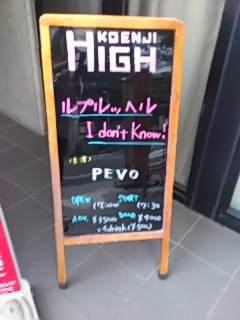 KOENJI
HIGH
ルプルッ、ヘル
I don't Know!
PEVO
OPEN START
17:00 17:30
ADV. ¥3500 DOOR ¥4000
+1drink(¥500)